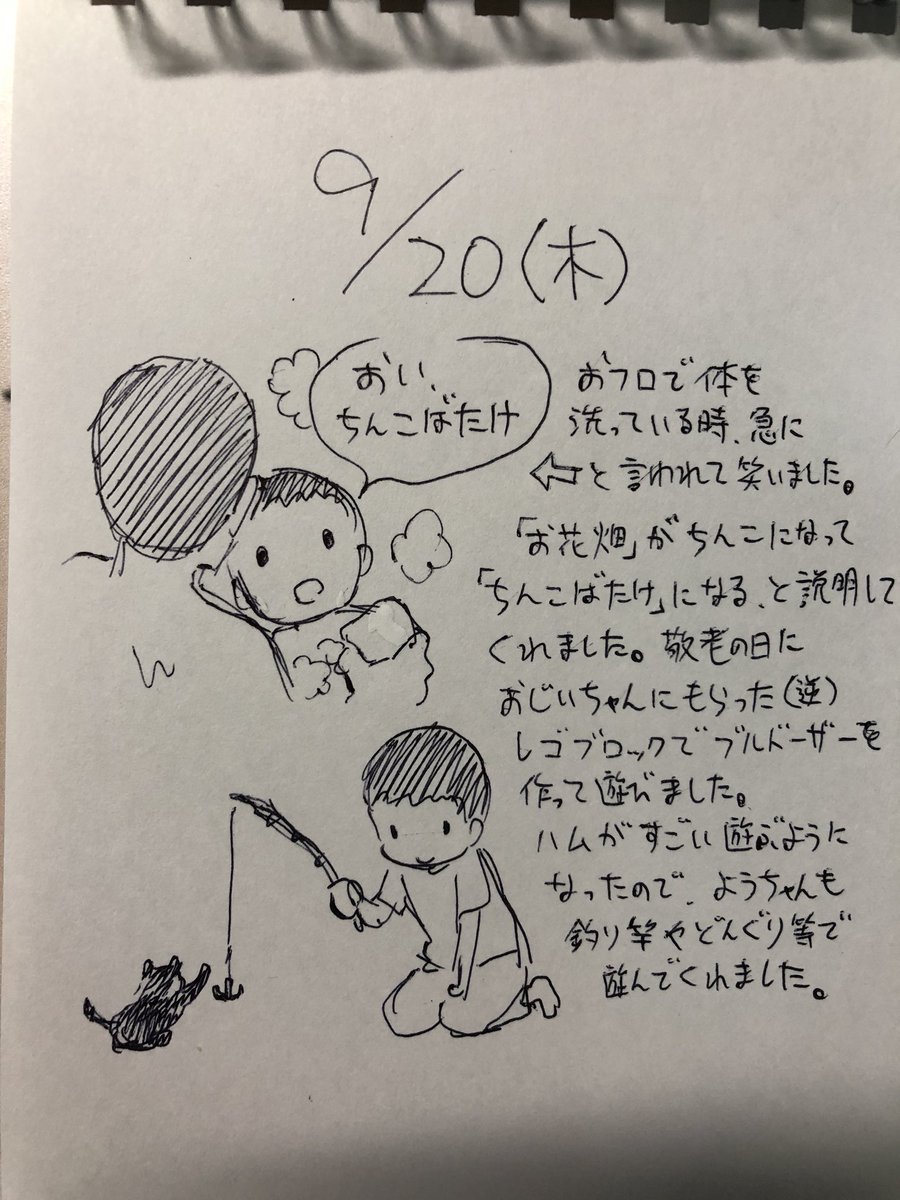 9/20(木)
おい、
ちんこばたけ
おフロで体を
洗っている時、急に
⇦と言われて笑いました。
「お花畑」がちんこになって
「ちんこばたけ」になる、と説明して
くれました。敬老の日に
おじいちゃんにもらった(逆)
レゴブロックでブルドーザーを
作って遊びました。
ハムがすごい遊ぶように
なったので、ようちゃんも
釣り竿やどんぐり等で
遊んでくれました。